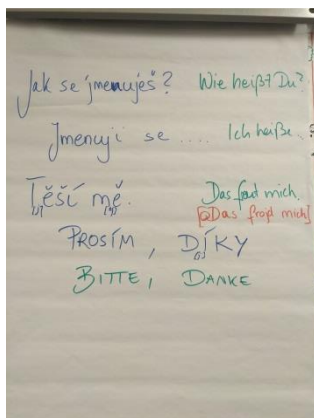 Jak se jmenuješ? Wie heißt Du?
Jmenuji se .... Ich heiße..
Těší mě. Das frad mich.
[Das frojd mich]
PROSÍM, DÍKY
BITTE, DANKE